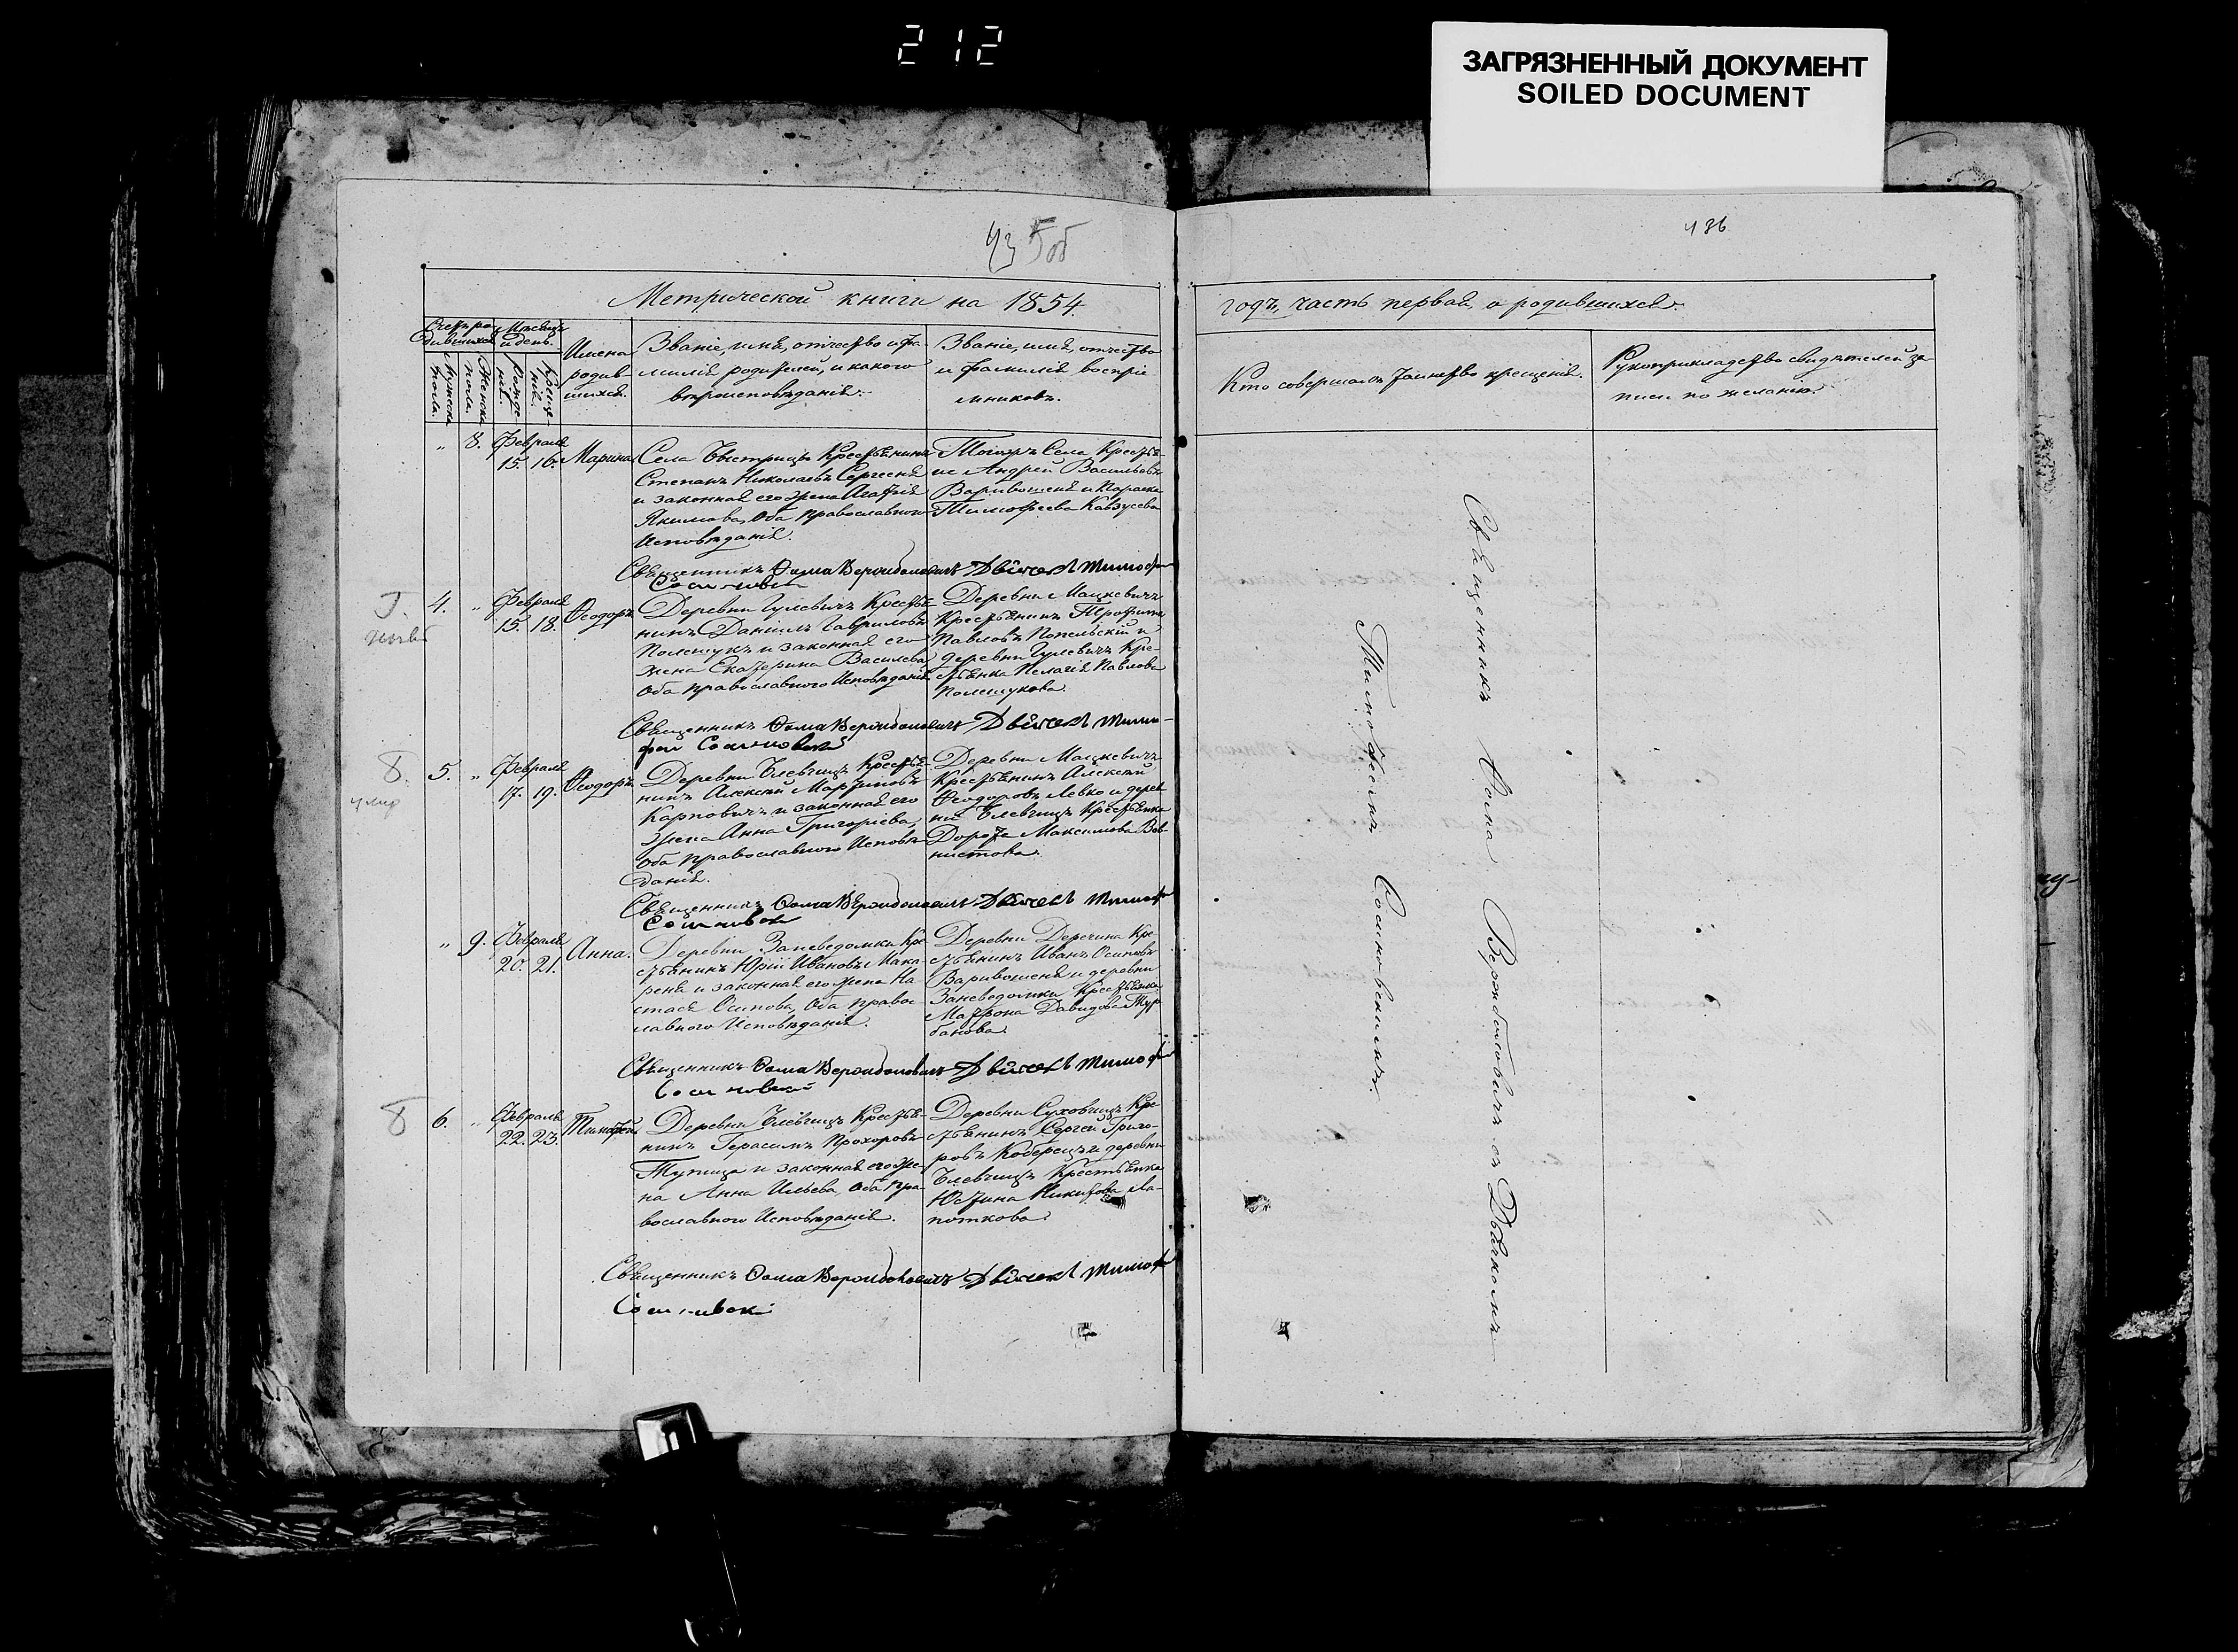 212
ЗАГРЯЗНЕННЫЙ ДОКУМЕНТ
SOILED DOCUMENT
435об
436
Метрической книги на 1854.
годъ, часть первая, о родившихся.
Счетъ родившихся
Мѣсяцъ и день.
Мужеска пола.
Женска пола.
Рожденія.
Крещенія.
Имена родившихся.
Званіе, имя, отчество и фамилія родителей, и какого вѣроисповѣданія.
Званіе, имя, отчество и фамилія воспріемниковъ.
Кто совершалъ таинство крещенія.
Рукоприкладство свидѣтелей записи по желанію.
„ 8. Февраля 15. 16. Марина
Села Быстрицы Крестьянинъ
Степанъ Николаевъ Сергееня
и законная его жена Агафія
Якимова, Оба православного
Исповѣданія.
Тогожъ Села Крестья-
не Андрей Васильевъ
Варивошеня и Параска
Тимофеева
Священникъ Ѳома Вержболовичъ Дьячекъ Тимофей
4. „ Февраля 15. 18. Ѳеодоръ
Деревни Гулевичъ Крестья-
нинъ Даніилъ Гавриловъ
Полещукъ и законная его
жена Екатерина Василева,
Оба православного Исповѣданія
Деревни Мацкевичъ
Крестьянинъ Трофимъ
Павловъ Попельскій и
деревни Гулевичъ Кре-
стьянка Пелагія Павлова
Полещукова.
Священникъ Ѳома Вержболовичъ Дьячекъ Тимо-
фей Сосиновскій
5. „ Февраля 17. 19. Ѳеодоръ
Деревни Блевчицъ Крестья-
нинъ Алексѣй Мартиновъ
Карповичъ и законная его
жена Анна Григоріева,
Оба православного Исповѣ-
данія.
Деревни Мацкевичъ
Крестьянинъ Алексѣй
Ѳеодоровъ Левко и дерев
ни Блевчицъ Крестьянка
Дорота Максимова
Священникъ Ѳома Вержболовичъ Дьячекъ Тимофей
„ 9. Февраля 20. 21. Анна.
Деревни Заневедомки Кре-
стьянинъ Юрій Ивановъ Мака
реня и законная его жена На
стася Осипова, Оба правос
лавного Исповѣданія.
Деревни Деречина Кре-
стьянинъ Иванъ Осиповъ
Варивошеня и деревни
Заневедомки Крестьянка
Матрона Давидова
Священникъ Ѳома Вержболовичъ Дьячекъ Тимофей
6. „ Февраля 22. 23. Тимофей
Деревни Блевчицъ Крестья-
нинъ Герасимъ Прохоровъ
Тупица и законная его же-
на Анна Ильева, Оба пра-
вославного Исповѣданія.
Деревни Суховчицъ Кре-
стьянинъ Сергей Григо-
ровъ Коберецъ и деревни
Блевчицъ Крестьянка
Юстина Никифова Ла-
поткова.
Священникъ Ѳома Вержболовичъ Дьячекъ Тимофей
Священникъ Ѳома Вержболовичъ съ Дьячкомъ
Тимофеемъ Сосиновскимъ.